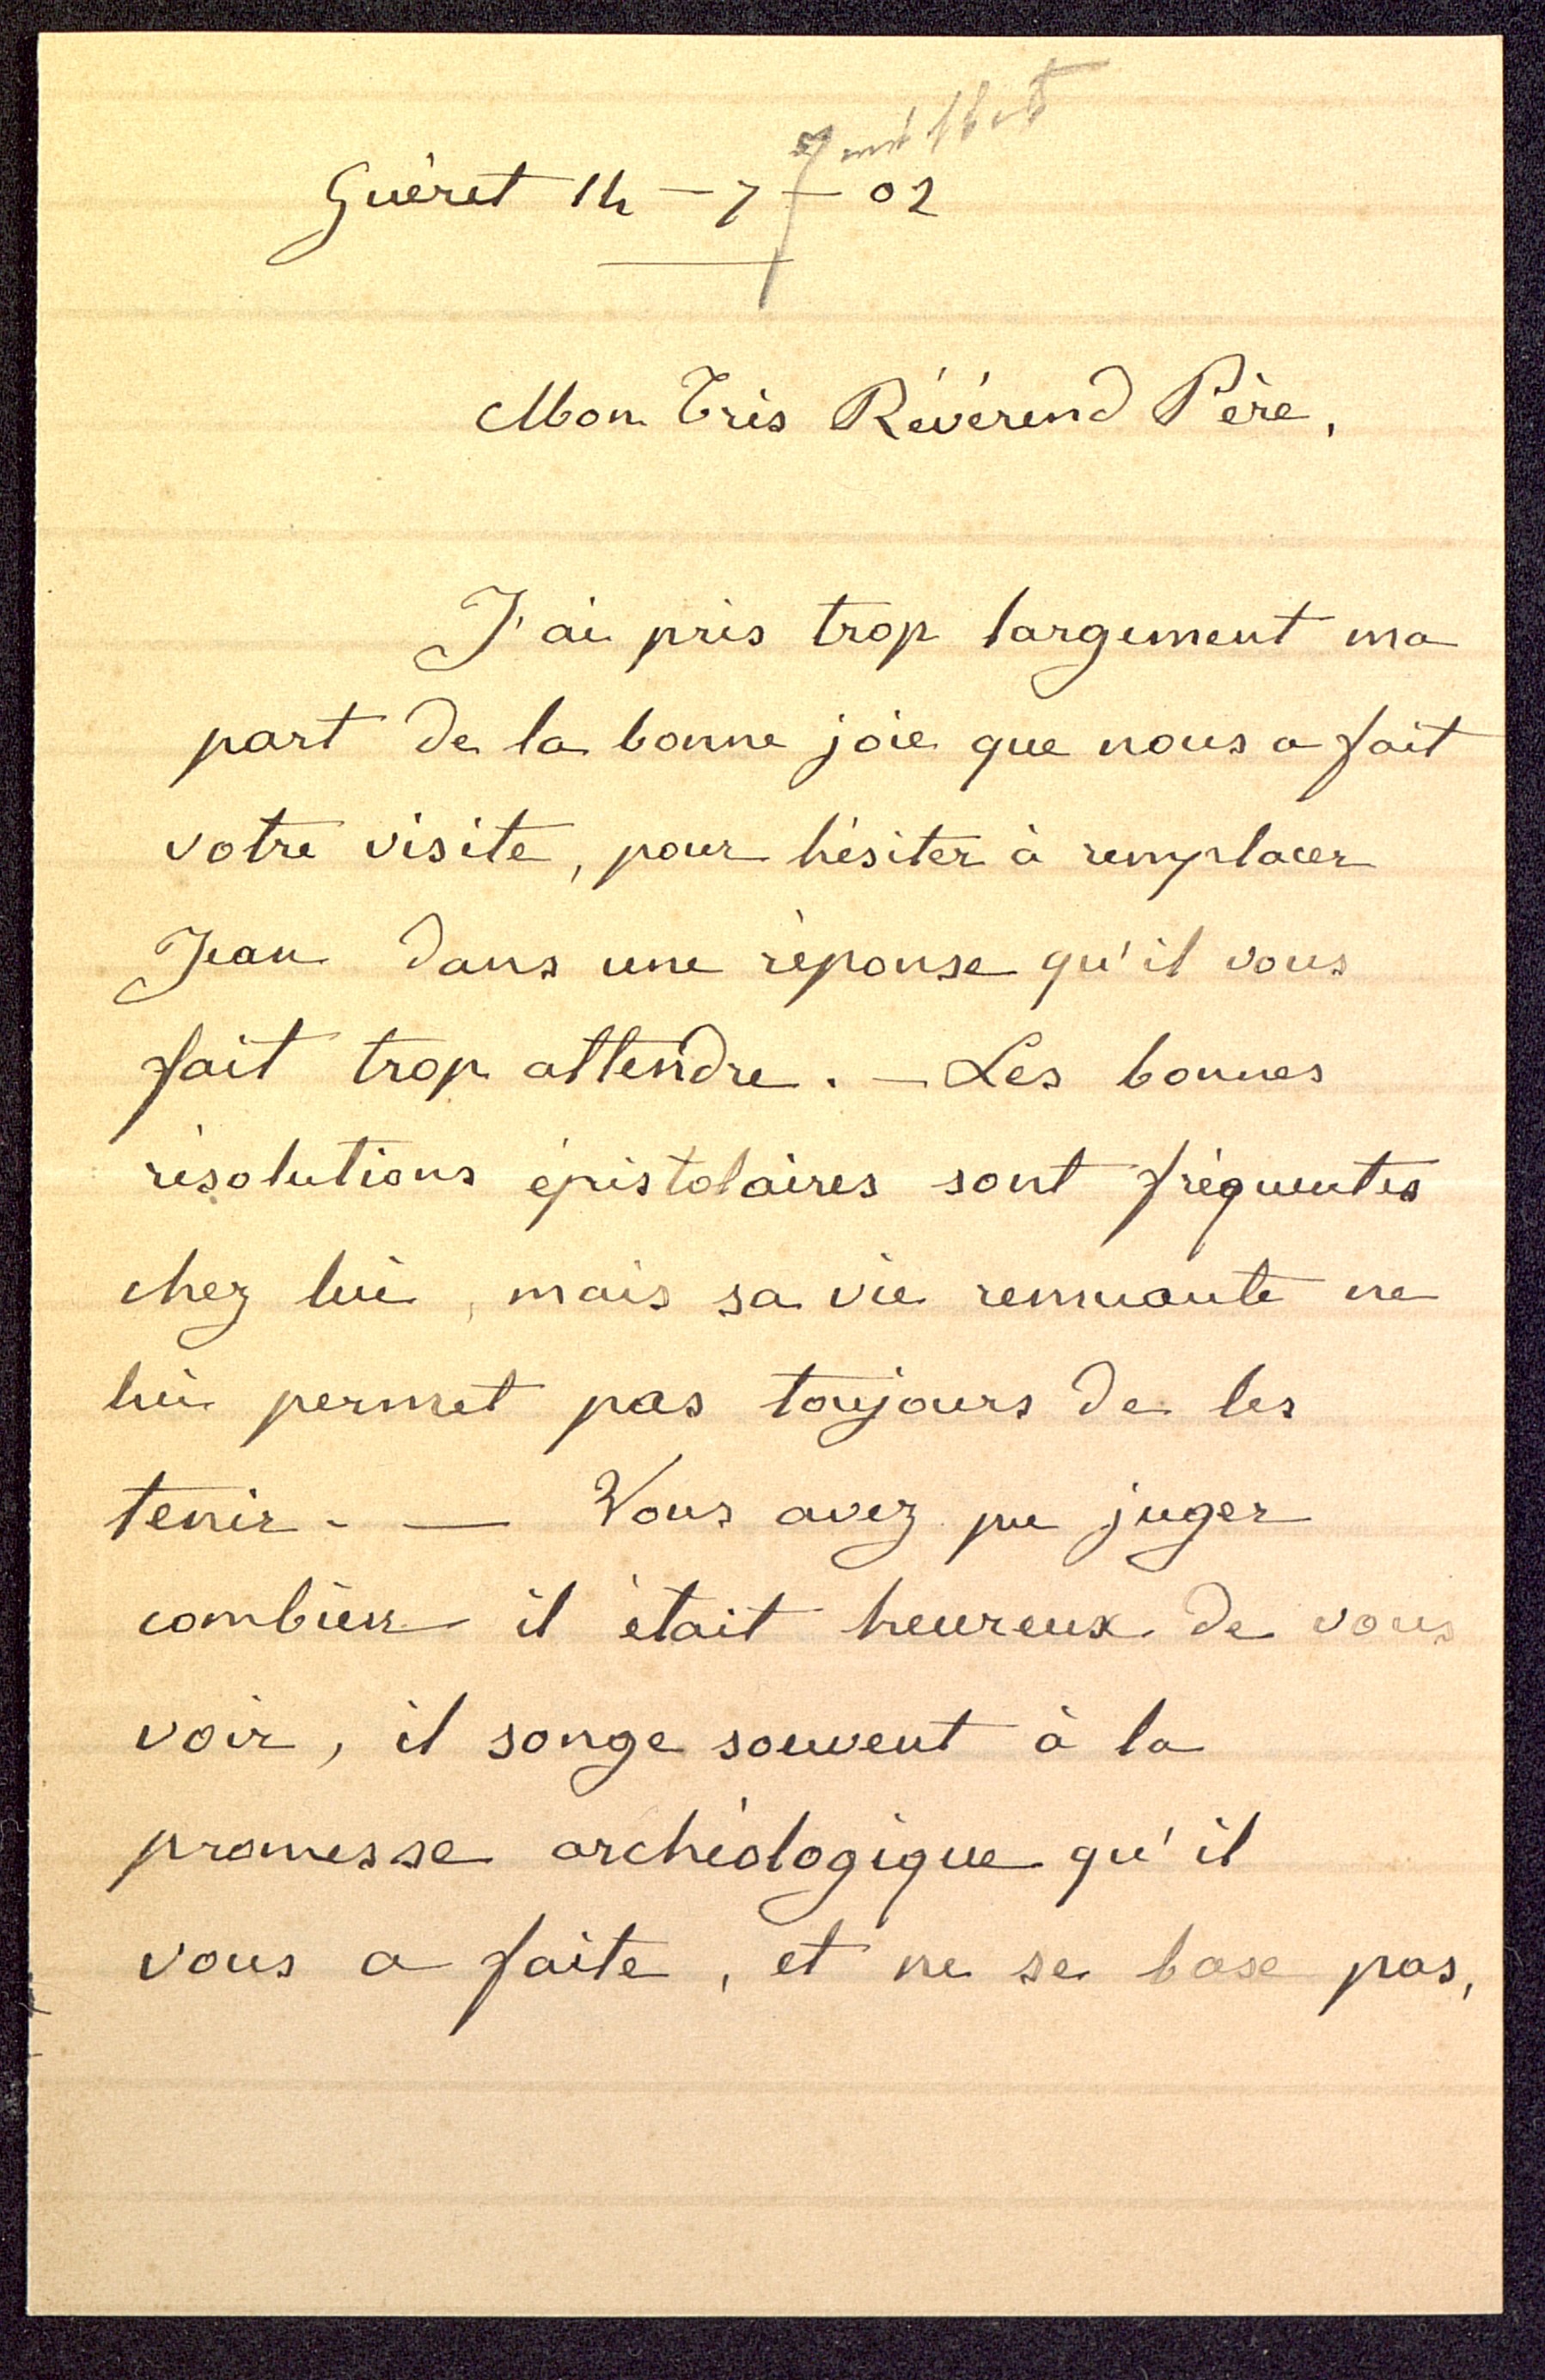 Guéret 14 - 7 - 02
Mon Très Révérend Père,
J'ai pris trop largement ma
part de la bonne joie que nous a fait
votre visite, pour hésiter à remplacer
Jean dans une réponse qu'il vous
fait trop attendre. — Les bonnes
résolutions épistolaires sont fréquentes
chez lui, mais sa vie remuante ne
lui permet pas toujours de les
tenir. — Vous avez pu juger
combien il était heureux de vous
voir, il songe souvent à la
promesse archéologique qu'il
vous a faite, et ne se base pas,